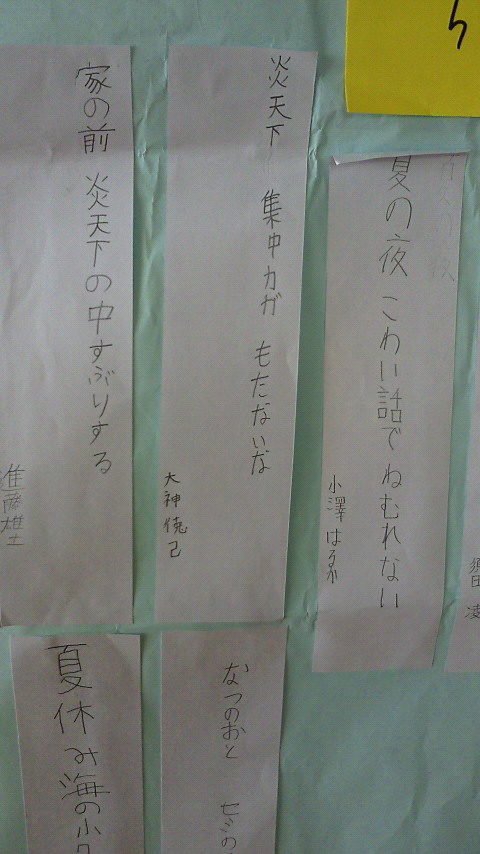 夏の夜 こわい話でねむれない
小澤 はるか
炎天下 集中力が もたないな
家の前 炎天下の中すぶりする
なつのおと セミの
夏休み海の